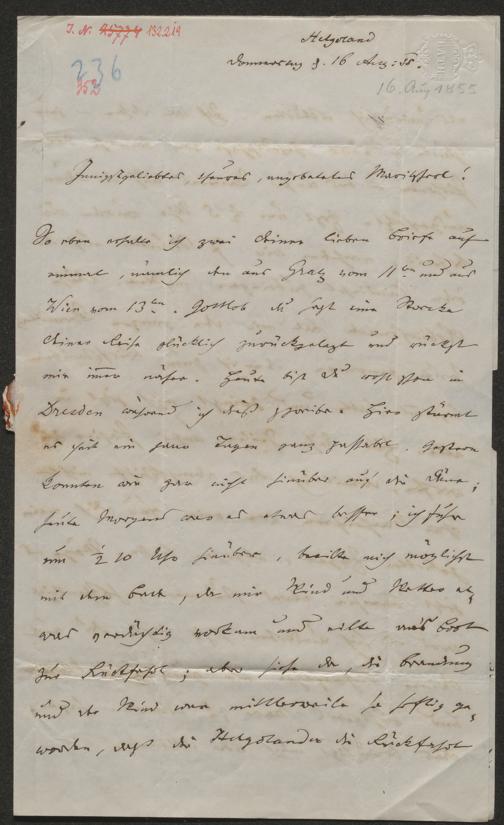 I. N. 45774 132219
236
352
Helgoland
Donnerstag d. 16 Aug: 55.
16. Aug 1855
Innigstgeliebtes, theures, angebetetes Moritzerl!
So eben erhalte ich zwei Deiner lieben Briefe auf
einmal, nämlich den aus Gratz vom 11ten und aus
Wien vom 13ten. Gottlob du hast eine Strecke
Deiner Reise glücklich zurückgelegt und rückst
mir immer näher. Heute bist du wohl schon in
Dresden während ich dieß schreibe. Hier stürmt
es seit ein paar Tagen ganz passabel. Gestern
konnten wir gar nicht hinüber auf die Düne;
heute Morgens war es etwas besser; ich fuhr
um ½ 10 Uhr hinüber, beeilte mich möglichst
mit dem Bade, da mir Wind und Wetter et-
was verdächtig vorkam und eilte ans Boot
zur Rückfahrt; aber siehe da, die Brandung
und der Wind war mittlerweile so heftig ge-
worden, daß die Helgolander die Rückfahrt